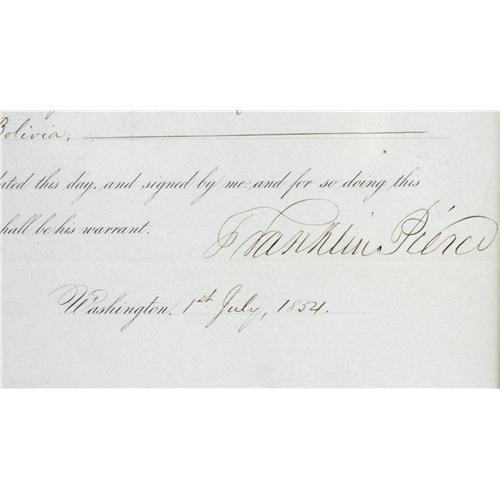 Bolivia,
dated this day, and signed by me: and for so doing this
shall be his warrant.
Franklin Pierce
Washington, 1st July, 1854.